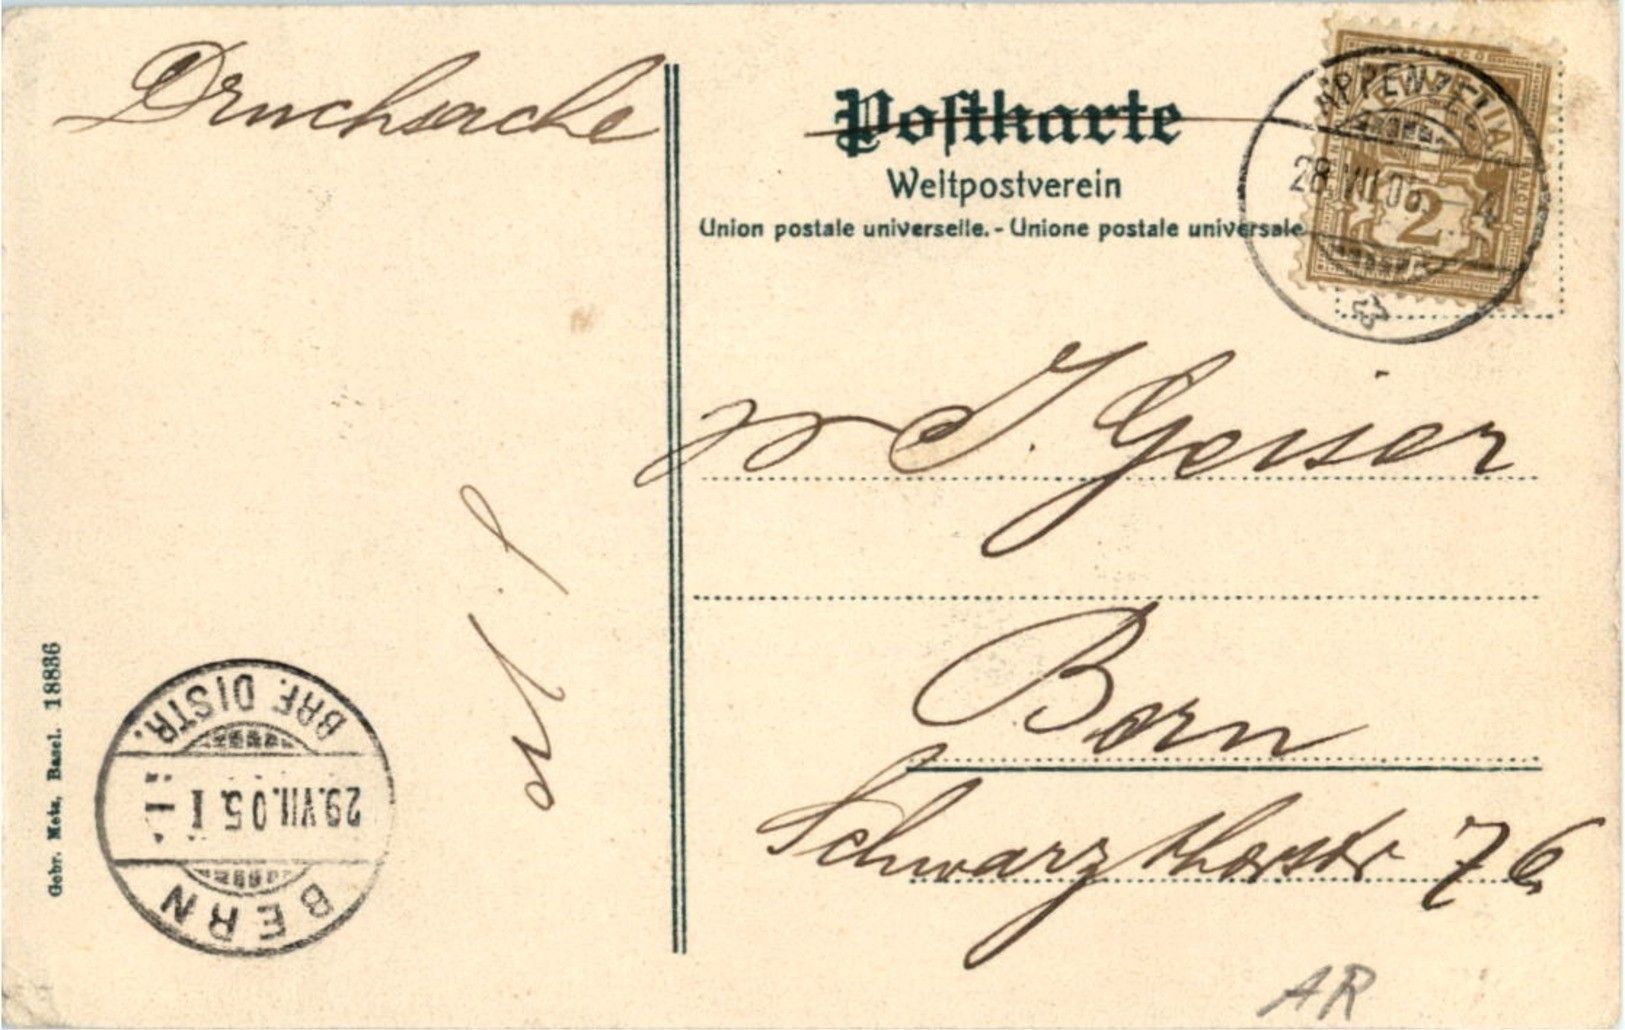 Druchsache
Postkarte
Weltpostverein
Union postale universelle. - Unione postale universale
APPENZELL
28.VII.05. 4
2
J. Geiser
Bern
Schwarzthorstr 76
BERN
29.VII.05. I
BRF. DISTR.
Gebr. Metz, Basel. 18836
AR